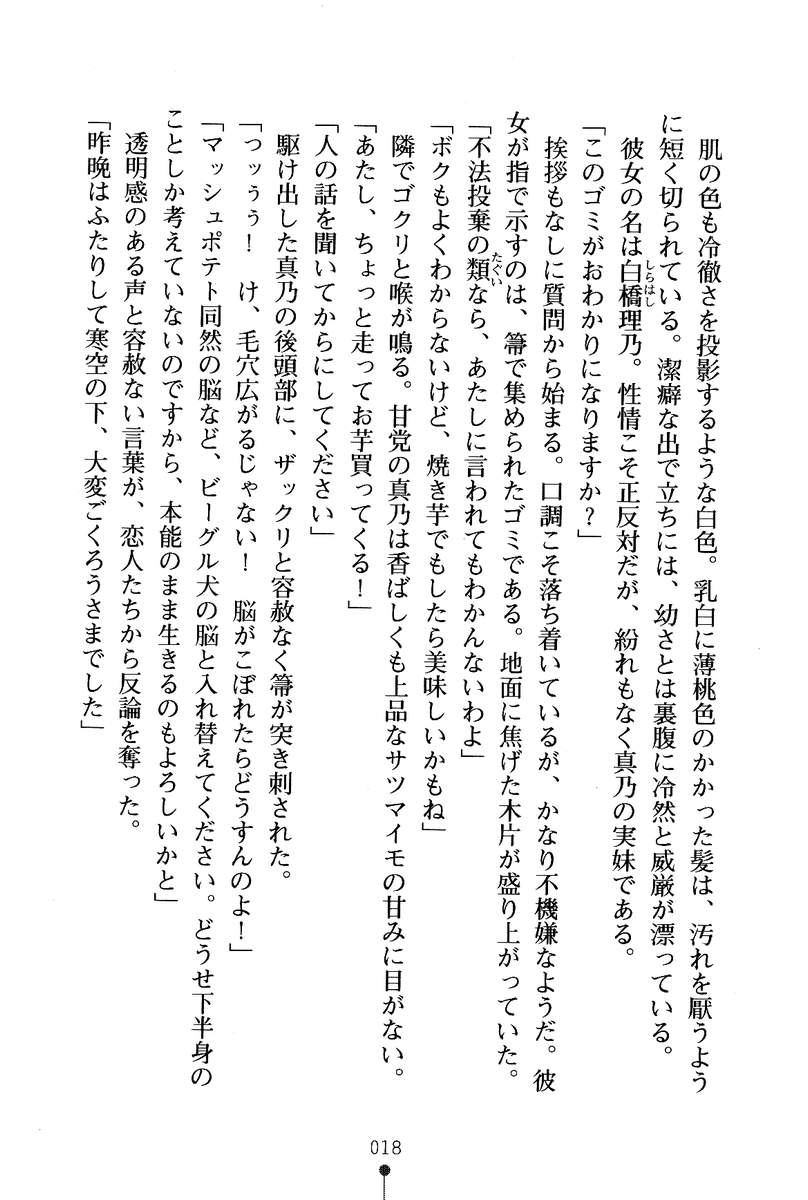 肌の色も冷徹さを投影するような白色。乳白に薄桃色のかかった髪は、汚れを厭うよう
に短く切られている。潔癖な出で立ちには、幼さとは裏腹に冷然と威厳が漂っている。
彼女の名は白橋理乃。性情こそ正反対だが、紛れもなく真乃の実妹である。
しらはし
「このゴミがおわかりになりますか？」
挨拶もなしに質問から始まる。口調こそ落ち着いているが、かなり不機嫌なようだ。彼
女が指で示すのは、箒で集められたゴミである。地面に焦げた木片が盛り上がっていた。
「不法投棄の類なら、あたしに言われてもわかんないわよ」
たぐい
「ボクもよくわからないけど、焼き芋でもしたら美味しいかもね」
隣でゴクリと喉が鳴る。甘党の真乃は香ばしくも上品なサツマイモの甘みに目がない。
「あたし、ちょっと走ってお芋買ってくる！」
「人の話を聞いてからにしてください」
駆け出した真乃の後頭部に、ザックリと容赦なく箒が突き刺された。
「っッぅぅ！　け、毛穴広がるじゃない！　脳がこぼれたらどうすんのよ！」
「マッシュポテト同然の脳など、ビーグル犬の脳と入れ替えてください。どうせ下半身の
ことしか考えていないのですから、本能のまま生きるのもよろしいかと」
透明感のある声と容赦ない言葉が、恋人たちから反論を奪った。
「昨晩はふたりして寒空の下、大変ごくろうさまでした」
018